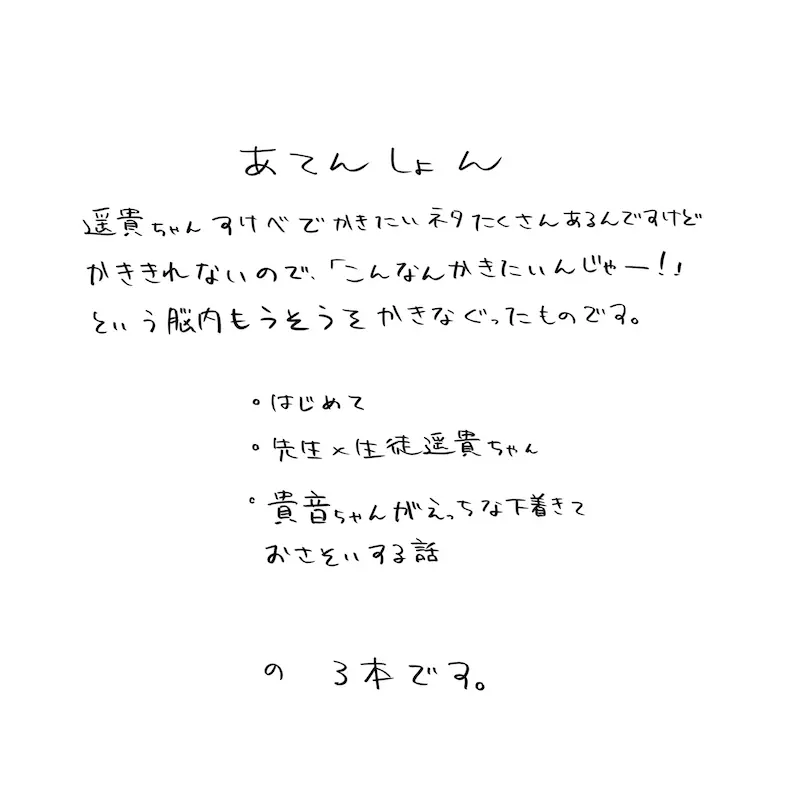 あてんしょん
遥貴ちゃんすけべでかきたいネタたくさんあるんですけど
かききれないので、「こんなんかきたいんじゃー!」
という脳内もうそうをかきなぐったものです。
・はじめて
・先生×生徒遥貴ちゃん
・貴音ちゃんがえっちな下着きて
おさそいする話
の 3本です。